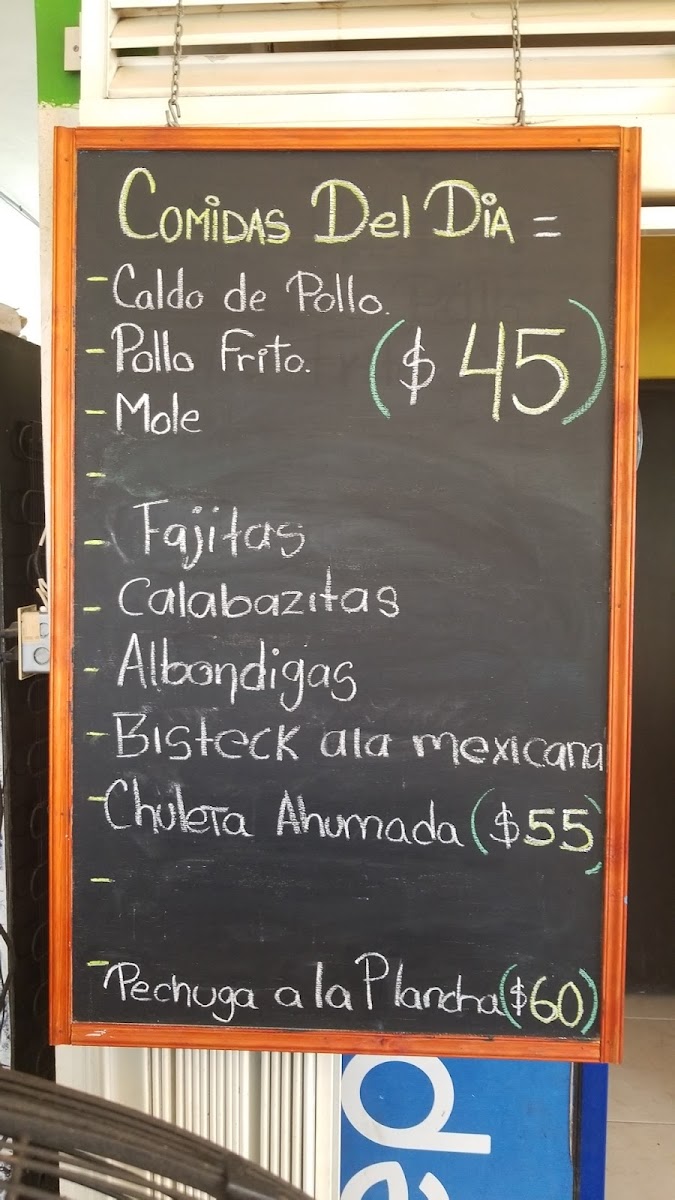 COMIDAS Del DIA =
- Caldo de Pollo.
- Pollo Frito. ($ 45)
- Mole
-
- Fajitas
- Calabazitas
- Albondigas
- BISTECK ala mexicana
- Chuleta Ahumada ($55)
-
- Pechuga a la Plancha ($60)